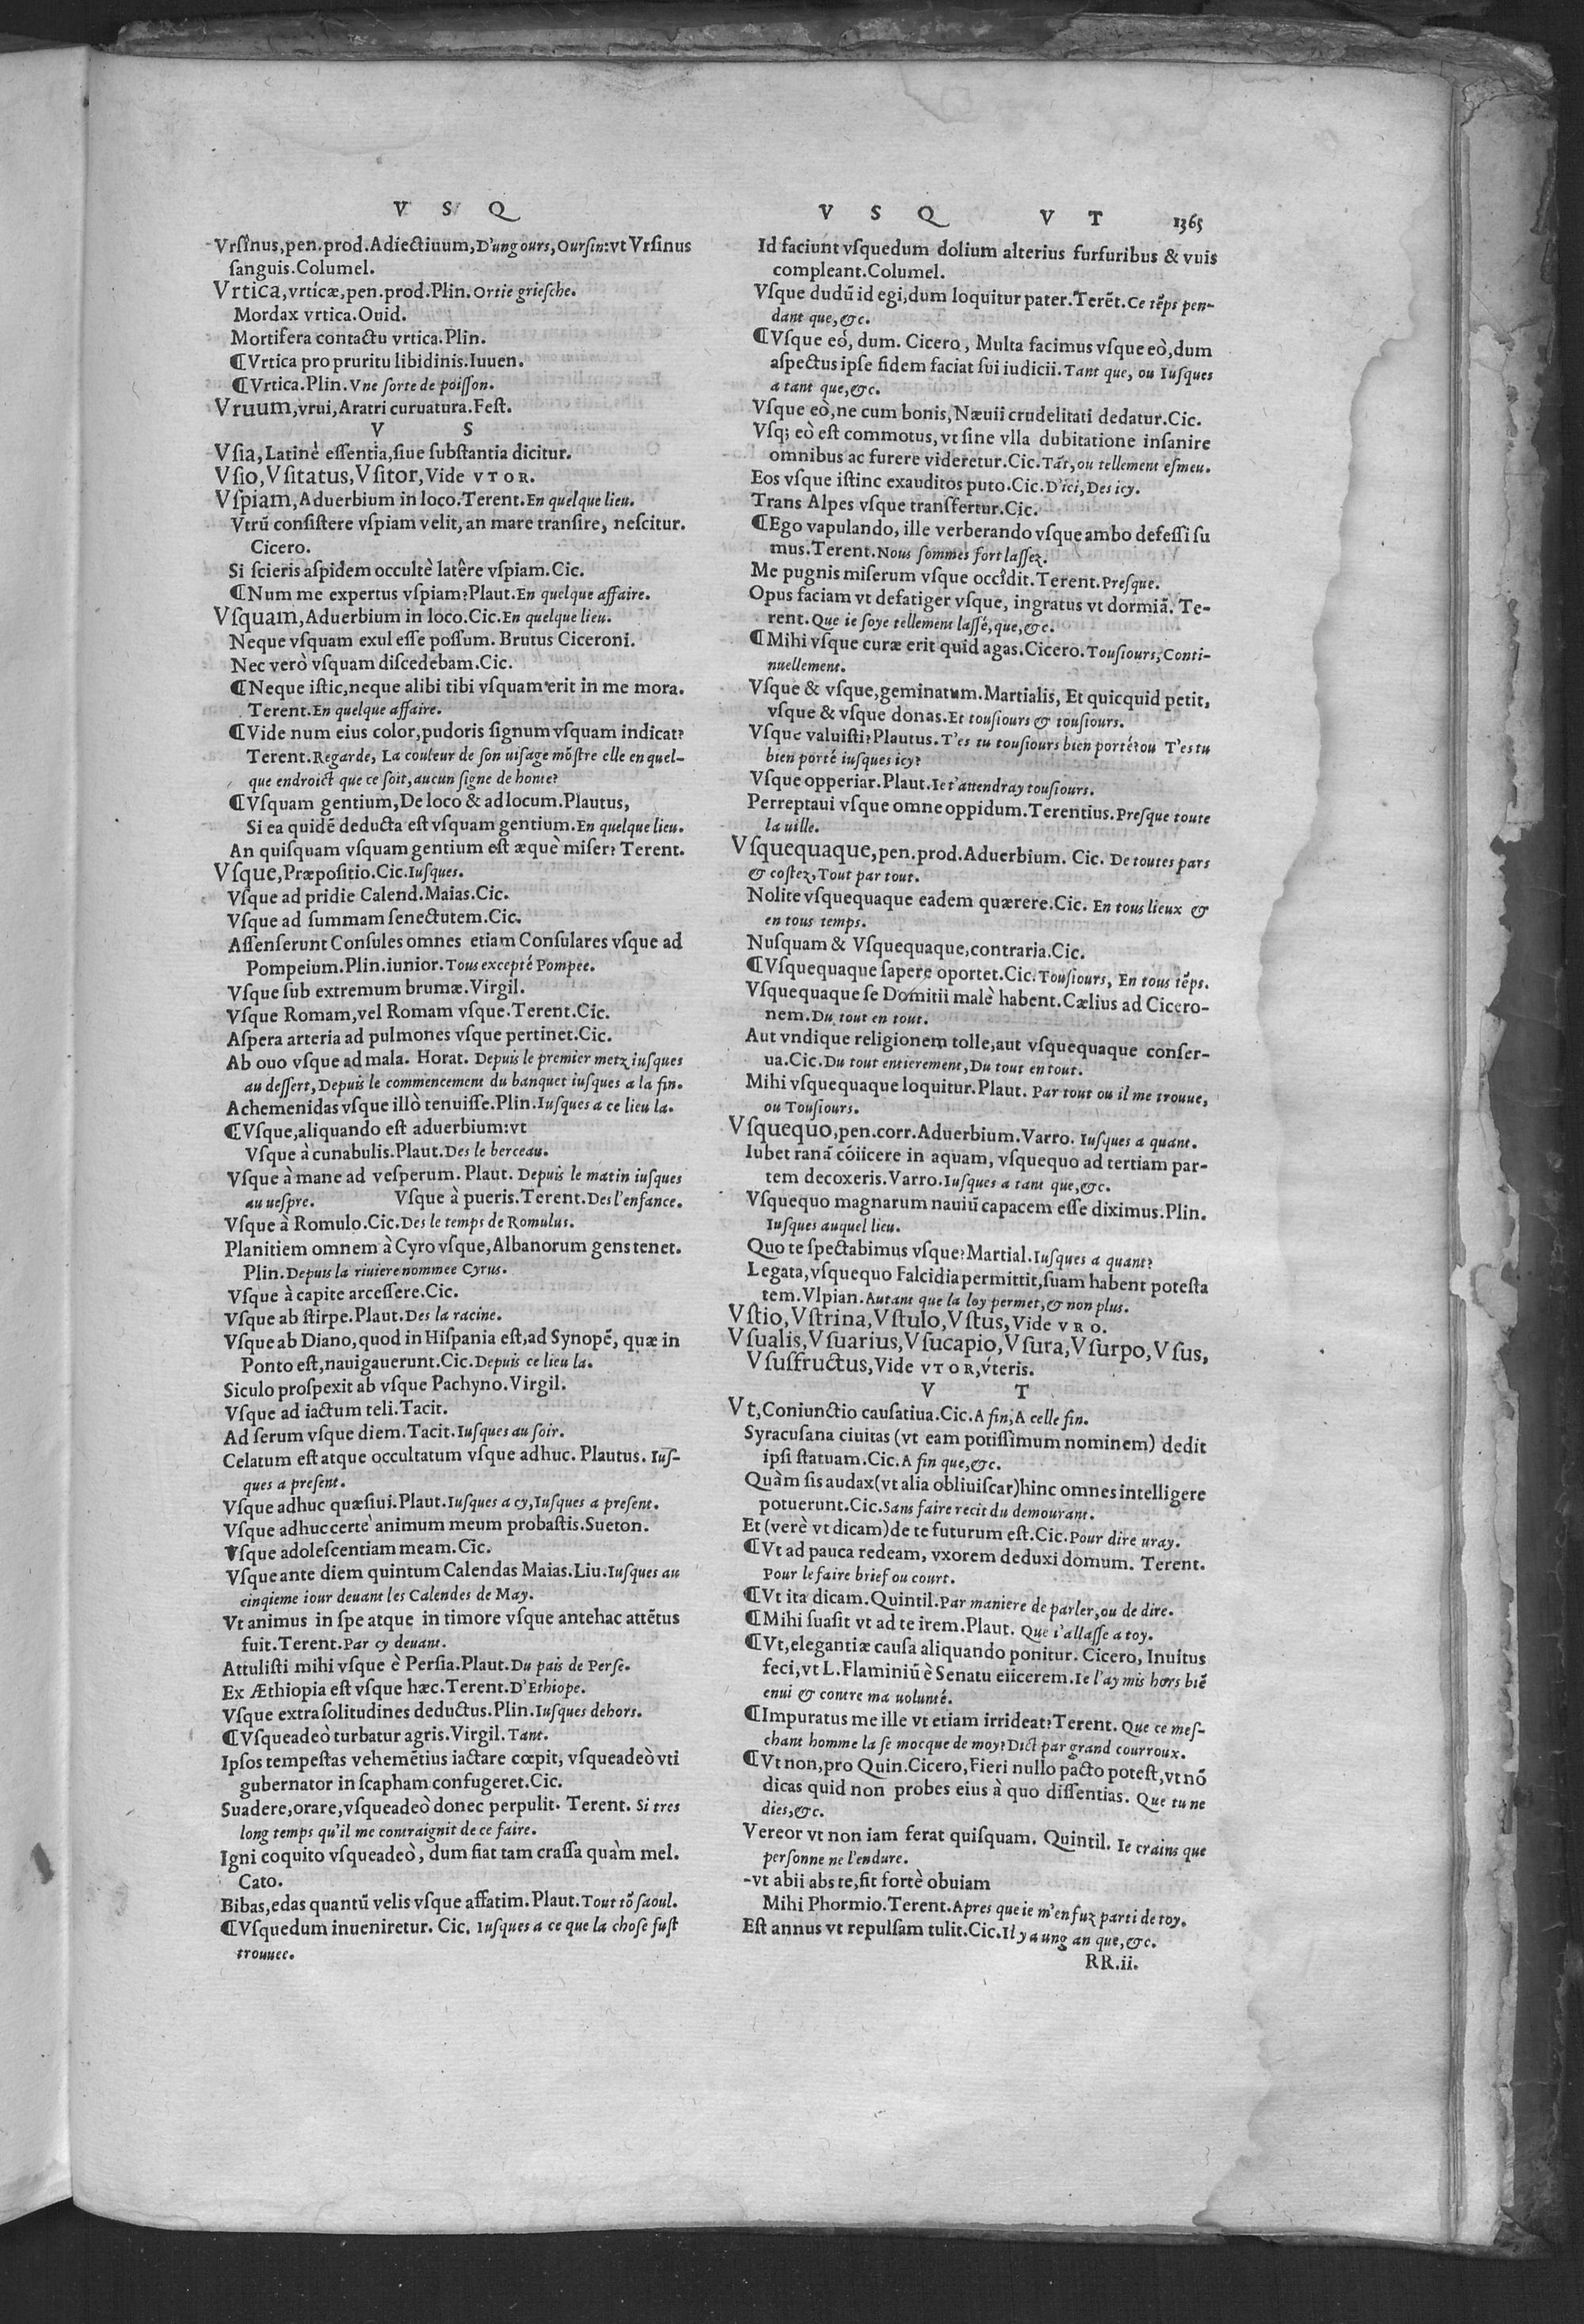 V S Q
Vrſînus, pen. prod. Adiectiuum, D'ung ours, Ourſin: vt Vrſinus
ſanguis. Columel.
Vrtica, vrtícæ, pen. prod. Plin. Ortie grieſche.
Mordax vrtica. Ouid.
Mortifera contactu vrtica. Plin.
¶Vrtica pro pruritu libidinis. Iuuen.
¶Vrtica. Plin. Vne ſorte de poiſſon.
Vruum, vrui, Aratri curuatura. Feſt.
V S
Vſia, Latinè eſſentia, ſiue ſubſtantia dicitur.
Vſio, Vſitatus, Vſitor, Vide VTOR.
Vſpiam, Aduerbium in loco. Terent. En quelque lieu.
Vtrũ conſiſtere vſpiam velit, an mare tranſire, neſcitur.
Cicero.
Si ſcieris aſpidem occultè latêre vſpiam. Cic.
¶Num me expertus vſpiam? Plaut. En quelque affaire.
Vſquam, Aduerbium in loco. Cic. En quelque lieu.
Neque vſquam exul eſſe poſſum. Brutus Ciceroni.
Nec verò vſquam diſcedebam. Cic.
¶Neque iſtic, neque alibi tibi vſquam erit in me mora.
Terent. En quelque affaire.
¶Vide num eius color, pudoris ſignum vſquam indicat?
Terent. Regarde, La couleur de ſon uiſage mõſtre elle en quel-
que endroict que ce ſoit, aucun ſigne de honte?
¶Vſquam gentium, De loco & ad locum. Plautus,
Si ea quidẽ deducta eſt vſquam gentium. En quelque lieu.
An quiſquam vſquam gentium eſt æquè miſer? Terent.
Vſque, Præpoſitio. Cic. Iuſques.
Vſque ad pridie Calend. Maias. Cic.
Vſque ad ſummam ſenectutem. Cic.
Aſſenſerunt Conſules omnes etiam Conſulares vſque ad
Pompeium. Plin. iunior. Tous excepté Pompee.
Vſque ſub extremum brumæ. Virgil.
Vſque Romam, vel Romam vſque. Terent. Cic.
Aſpera arteria ad pulmones vſque pertinet. Cic.
Ab ouo vſque ad mala. Horat. Depuis le premier metz iuſques
au deſſert, Depuis le commencement du banquet iuſques a la fin.
Achemenidas vſque illò tenuiſſe. Plin. Iuſques a ce lieu la.
¶Vſque, aliquando eſt aduerbium: vt
Vſque à cunabulis. Plaut. Des le berceau.
Vſque à mane ad veſperum. Plaut. Depuis le matin iuſques
au ueſpre. Vſque à pueris. Terent. Des l'enfance.
Vſque à Romulo. Cic. Des le temps de Romulus.
Planitiem omnem à Cyro vſque, Albanorum gens tenet.
Plin. Depuis la riuiere nommee Cyrus.
Vſque à capite arceſſere. Cic.
Vſque ab ſtirpe. Plaut. Des la racine.
Vſque ab Diano, quod in Hiſpania eſt, ad Synopẽ, quæ in
Ponto eſt, nauigauerunt. Cic. Depuis ce lieu la.
Siculo proſpexit ab vſque Pachyno. Virgil.
Vſque ad iactum teli. Tacit.
Ad ſerum vſque diem. Tacit. Iuſques au ſoir.
Celatum eſt atque occultatum vſque adhuc. Plautus. Iuſ-
ques a preſent.
Vſque adhuc quæſiui. Plaut. Iuſques a cy, Iuſques a preſent.
Vſque adhuc certè animum meum probaſtis. Sueton.
Vſque adoleſcentiam meam. Cic.
Vſque ante diem quintum Calendas Maias. Liu. Iuſques au
cinqieme iour deuant les Calendes de May.
Vt animus in ſpe atque in timore vſque antehac attẽtus
fuit. Terent. Par cy deuant.
Attuliſti mihi vſque è Perſia. Plaut. Du pais de Perſe.
Ex Æthiopia eſt vſque hæc. Terent. D'Ethiope.
Vſque extra ſolitudines deductus. Plin. Iuſques dehors.
¶Vſqueadeò turbatur agris. Virgil. Tant.
Ipſos tempeſtas vehemẽtius iactare cœpit, vſqueadeò vti
gubernator in ſcapham confugeret. Cic.
Suadere, orare, vſqueadeò donec perpulit. Terent. Si tres
long temps qu'il me contraignit de ce faire.
Igni coquito vſqueadeò, dum fiat tam craſſa quàm mel.
Cato.
Bibas, edas quantũ velis vſque affatim. Plaut. Tout tõ ſaoul.
¶Vſquedum inueniretur. Cic. Iuſques a ce que la choſe fuſt
trouuee.
V S Q V T 1365
Id faciunt vſquedum dolium alterius furfuribus & vuis
compleant. Columel.
Vſque dudũ id egi, dum loquitur pater. Terẽt. Ce tẽps pen-
dant que, &c.
¶Vſque eò, dum. Cicero, Multa facimus vſque eò, dum
aſpectus ipſe fidem faciat ſui iudicii. Tant que, ou Iuſques
a tant que, &c.
Vſque eò, ne cum bonis, Næuii crudelitati dedatur. Cic.
Vſq; eò eſt commotus, vt ſine vlla dubitatione inſanire
omnibus ac furere videretur. Cic. Tãt, ou tellement eſmeu.
Eos vſque iſtinc exauditos puto. Cic. D'ici, Des icy.
Trans Alpes vſque transfertur. Cic.
¶Ego vapulando, ille verberando vſque ambo defeſſi ſu
mus. Terent. Nous ſommes fort laſſez.
Me pugnis miſerum vſque occîdit. Terent. Preſque.
Opus faciam vt defatiger vſque, ingratus vt dormiã. Te-
rent. Que ie ſoye tellement laſſé, que, &c.
¶Mihi vſque curæ erit quid agas. Cicero. Touſiours, Conti-
nuellement.
Vſque & vſque, geminatum. Martialis, Et quicquid petit,
vſque & vſque donas. Et touſiours & touſiours.
Vſque valuiſti? Plautus. T'es tu touſiours bien porté? ou T'es tu
bien porté iuſques icy?
Vſque opperiar. Plaut. Ie t'attendray touſiours.
Perreptaui vſque omne oppidum. Terentius. Preſque toute
la uille.
Vſquequaque, pen. prod. Aduerbium. Cic. De toutes pars
& coſtez, Tout par tout.
Nolite vſquequaque eadem quærere. Cic. En tous lieux &
en tous temps.
Nuſquam & Vſquequaque, contraria. Cic.
¶Vſquequaque ſapere oportet. Cic. Touſiours, En tous tẽps.
Vſquequaque ſe Domitii malè habent. Cælius ad Cicero-
nem. Du tout en tout.
Aut vndique religionem tolle, aut vſquequaque conſer-
ua. Cic. Du tout entierement, Du tout en tout.
Mihi vſquequaque loquitur. Plaut. Par tout ou il me trouue,
ou Touſiours.
Vſquequo, pen. corr. Aduerbium. Varro. Iuſques a quant.
Iubet ranã cõiicere in aquam, vſquequo ad tertiam par-
tem decoxeris. Varro. Iuſques a tant que, &c.
Vſquequo magnarum nauiũ capacem eſſe diximus. Plin.
Iuſques auquel lieu.
Quo te ſpectabimus vſque? Martial. Iuſques a quant?
Legata, vſquequo Falcidia permittit, ſuam habent poteſta
tem. Vlpian. Autant que la loy permet, & non plus.
Vſtio, Vſtrina, Vſtulo, Vſtus, Vide VRO.
Vſualis, Vſuarius, Vſucapio, Vſura, Vſurpo, Vſus,
Vſusfructus, Vide VTOR, v́teris.
V T
Vt, Coniunctio cauſatiua. Cic. A fin, A celle fin.
Syracuſana ciuitas (vt eam potiſſimum nominem) dedit
ipſi ſtatuam. Cic. A fin que, &c.
Quàm ſis audax (vt alia obliuiſcar) hinc omnes intelligere
potuerunt. Cic. Sans faire recit du demourant.
Et (verè vt dicam) de te futurum eſt. Cic. Pour dire uray.
¶Vt ad pauca redeam, vxorem deduxi domum. Terent.
Pour le faire brief ou court.
¶Vt ita dicam. Quintil. Par maniere de parler, ou de dire.
¶Mihi ſuaſit vt ad te irem. Plaut. Que i'allaſſe a toy.
¶Vt, elegantiæ cauſa aliquando ponitur. Cicero, Inuitus
feci, vt L. Flaminiũ è Senatu eiicerem. Ie l'ay mis hors biẽ
enui & contre ma uolunté.
¶Impuratus me ille vt etiam irrideat? Terent. Que ce meſ-
chant homme la ſe mocque de moy? Dict par grand courroux.
¶Vt non, pro Quin. Cicero, Fieri nullo pacto poteſt, vt nõ
dicas quid non probes eius à quo diſſentias. Que tu ne
dies, &c.
Vereor vt non iam ferat quiſquam. Quintil. Ie crains que
perſonne ne l'endure.
-vt abii abs te, fit fortè obuiam
Mihi Phormio. Terent. Apres que ie m'en fuz parti de toy.
Eſt annus vt repulſam tulit. Cic. Il y a ung an que, &c.
RR.ii.